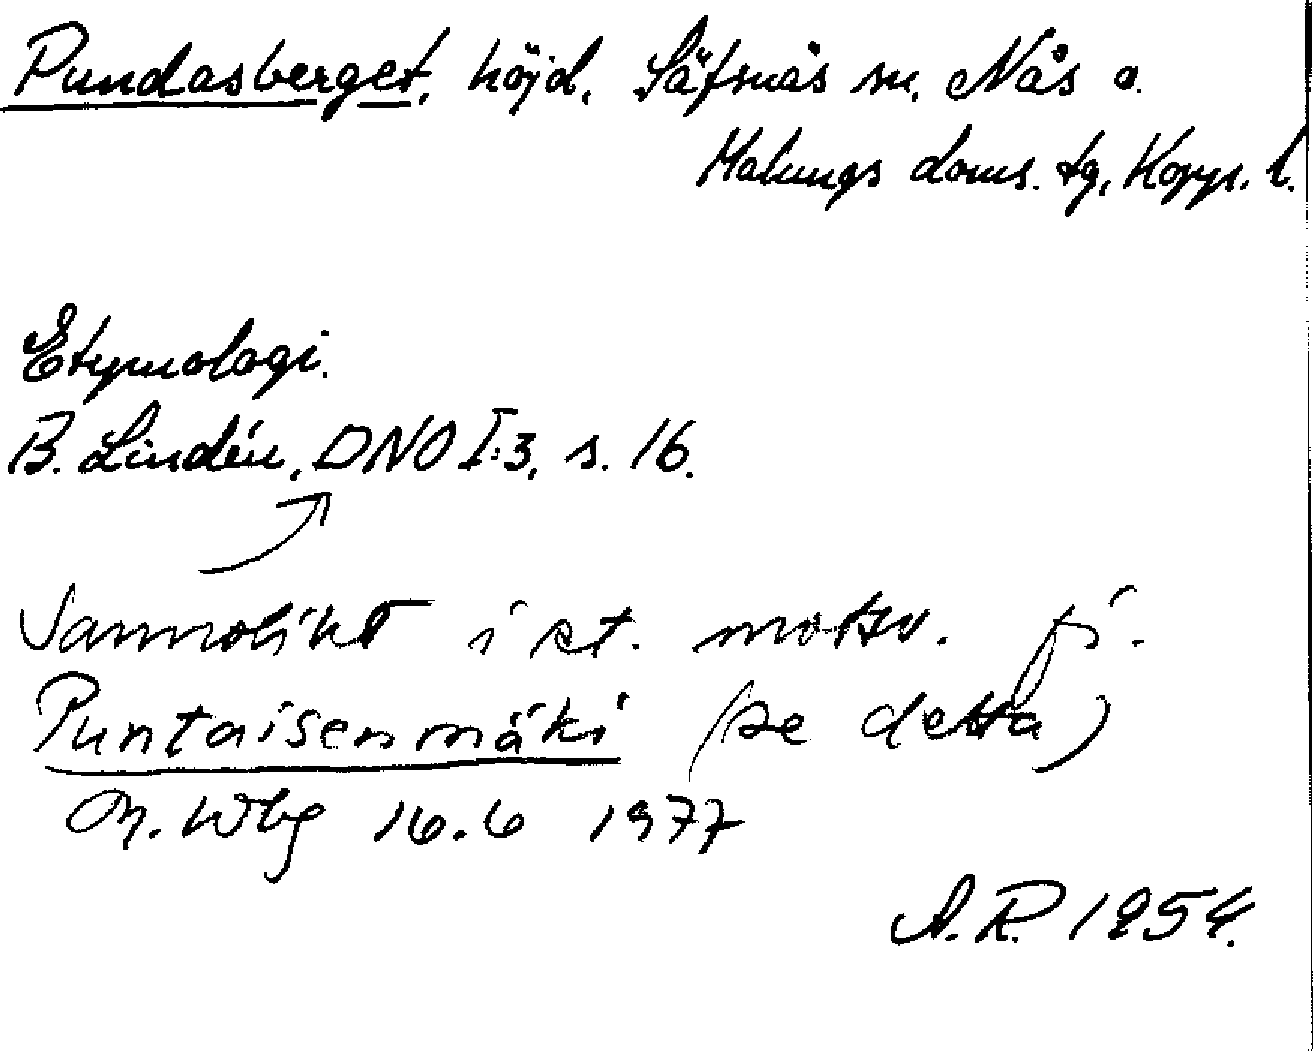 Pundasberget, höjd, Säfsnäs sn, Nås o.
Malungs doms. tg, Kopps. l.
Etymologi.
B. Lindén, DNO I:3, s. 16.
Sannolikt i st. motsv. fi.
Puntaisenmäki (se detta)
M. Wbg 16.6 1977
A.R. 1954.